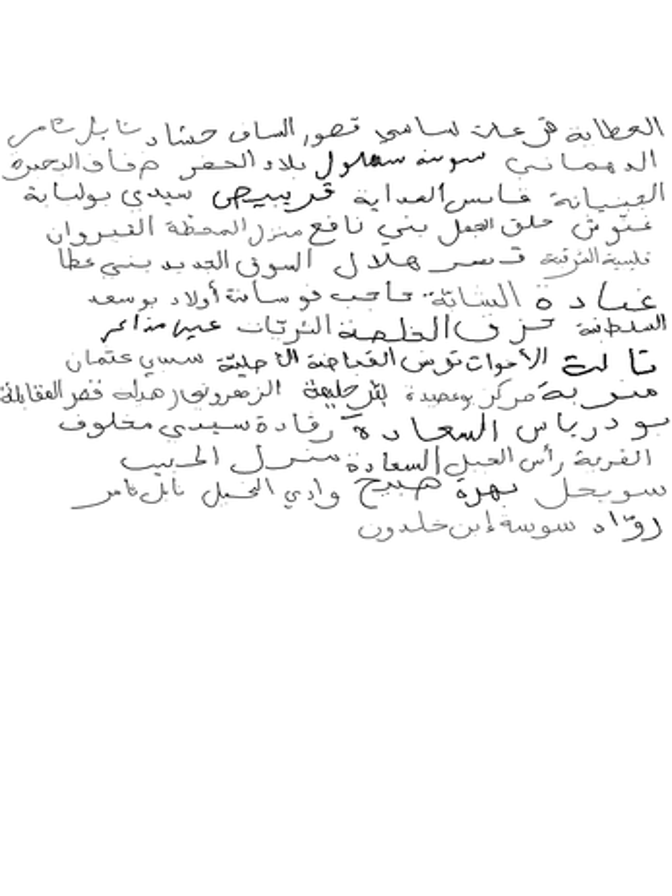 العطاية قرعلة ساسي قصور الساف حشاد نابل ثامر
الدهماني سوسة سهلول بلاد الحضر
الغنيانة فايس الهداية سيدي بولبابة
غنوش حلق الجمل بني نافع منزل المحطة القيروان
قليبية الشرقية قصر هلال السوق الجديد بني عطا
غنادة السانة حاجب فوسانة أولاد بوسعد
السلطنية حزق الخلصة الثريات عين مذاكر
تالة الأخوات تونس القباضة الأصلية سيدي عثمان
منربة مركز بوعصيدة بئر حليمة الزهروني
بودرياس السعادة رقادة سيدي مخلوف
القرية رأس الجبل السعادة منزل الحبيب
سويحل بهرة صبيح وادي النخيل نابل ثامر
روّاد سوسة إبن خلدون